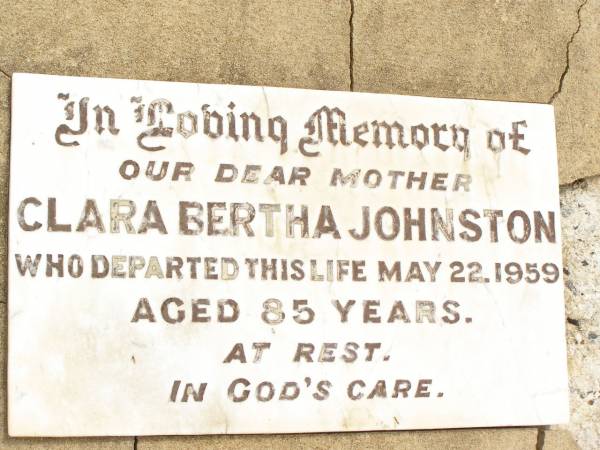 In Loving Memory of
OUR DEAR MOTHER
CLARA BERTHA JOHNSTON
WHO DEPARTED THIS LIFE MAY 22.1959
AGED 85 YEARS.
AT REST.
IN GOD'S CARE.